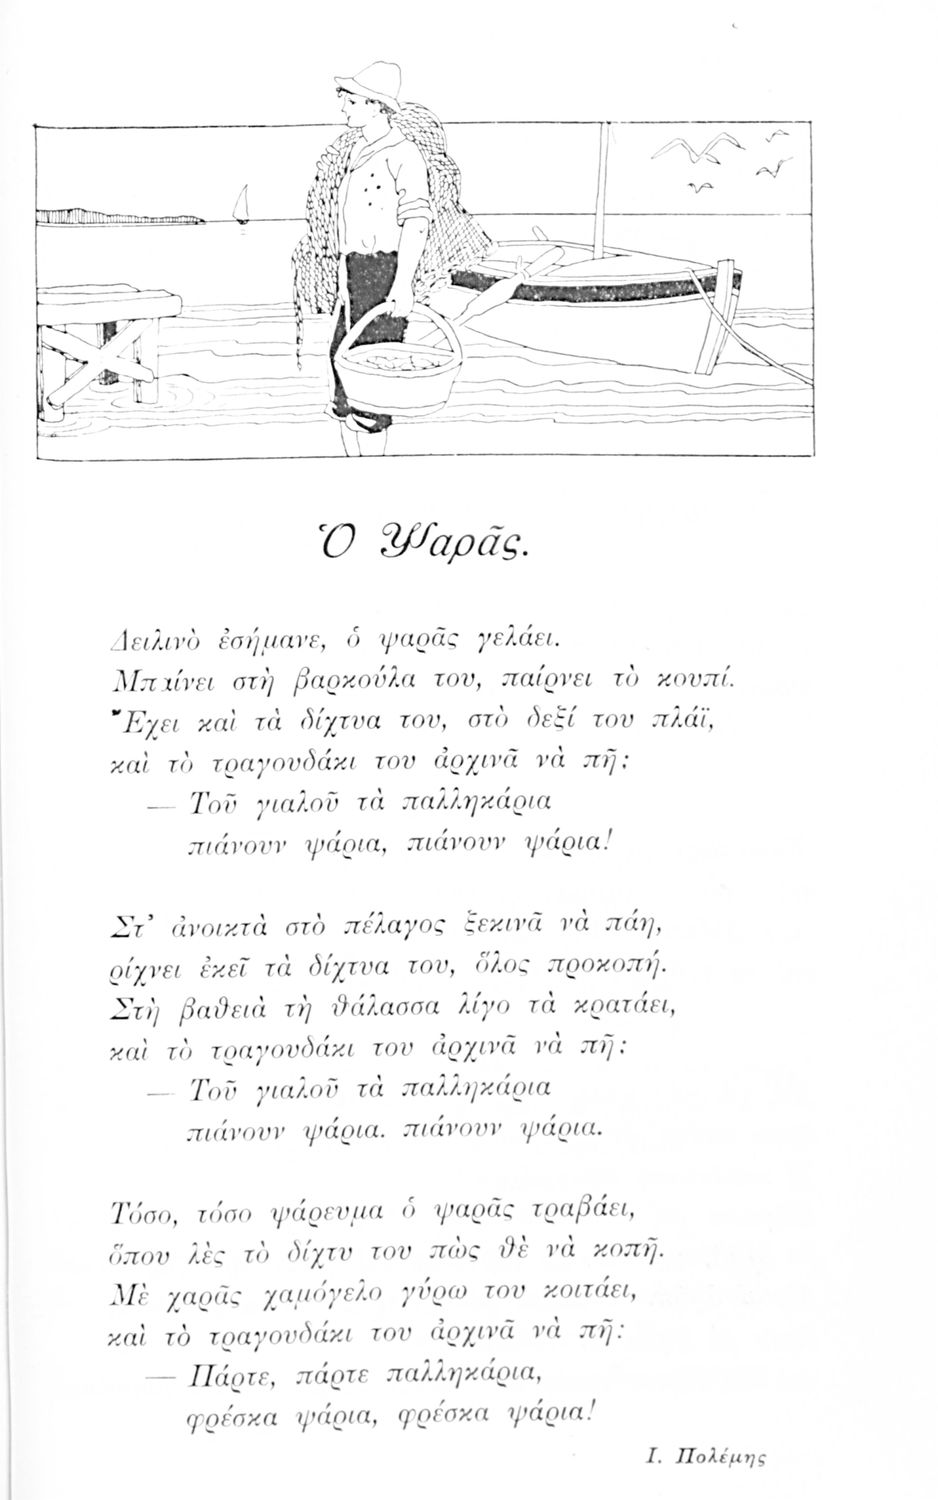 Ὁ Ψαρᾶς.
Δειλινὸ ἐσήμανε, ὁ ψαρᾶς γελάει.
Μπαίνει στὴ βαρκούλα του, παίρνει τὸ κουπί.
Ἔχει καὶ τὰ δίχτυα του, στὸ δεξί του πλάϊ,
καὶ τὸ τραγουδάκι του ἀρχινᾶ νὰ πῆ:
— Τοῦ γιαλοῦ τὰ παλληκάρια
πιάνουν ψάρια, πιάνουν ψάρια!
Στ’ ἀνοικτὰ στὸ πέλαγος ξεκινᾶ νὰ πάη,
ρίχνει ἐκεῖ τὰ δίχτυα του, ὅλος προκοπή.
Στὴ βαθειὰ τὴ θάλασσα λίγο τὰ κρατάει,
καὶ τὸ τραγουδάκι του ἀρχινᾶ νὰ πῆ:
— Τοῦ γιαλοῦ τὰ παλληκάρια
πιάνουν ψάρια. πιάνουν ψάρια.
Τόσο, τόσο ψάρευμα ὁ ψαρᾶς τραβάει,
ὅπου λὲς τὸ δίχτυ του πὼς θὲ νὰ κοπῆ.
Μὲ χαρᾶς χαμόγελο γύρω του κοιτάει,
καὶ τὸ τραγουδάκι του ἀρχινᾶ νὰ πῆ:
— Πάρτε, πάρτε παλληκάρια,
φρέσκα ψάρια, φρέσκα ψάρια!
Ι. Πολέμης